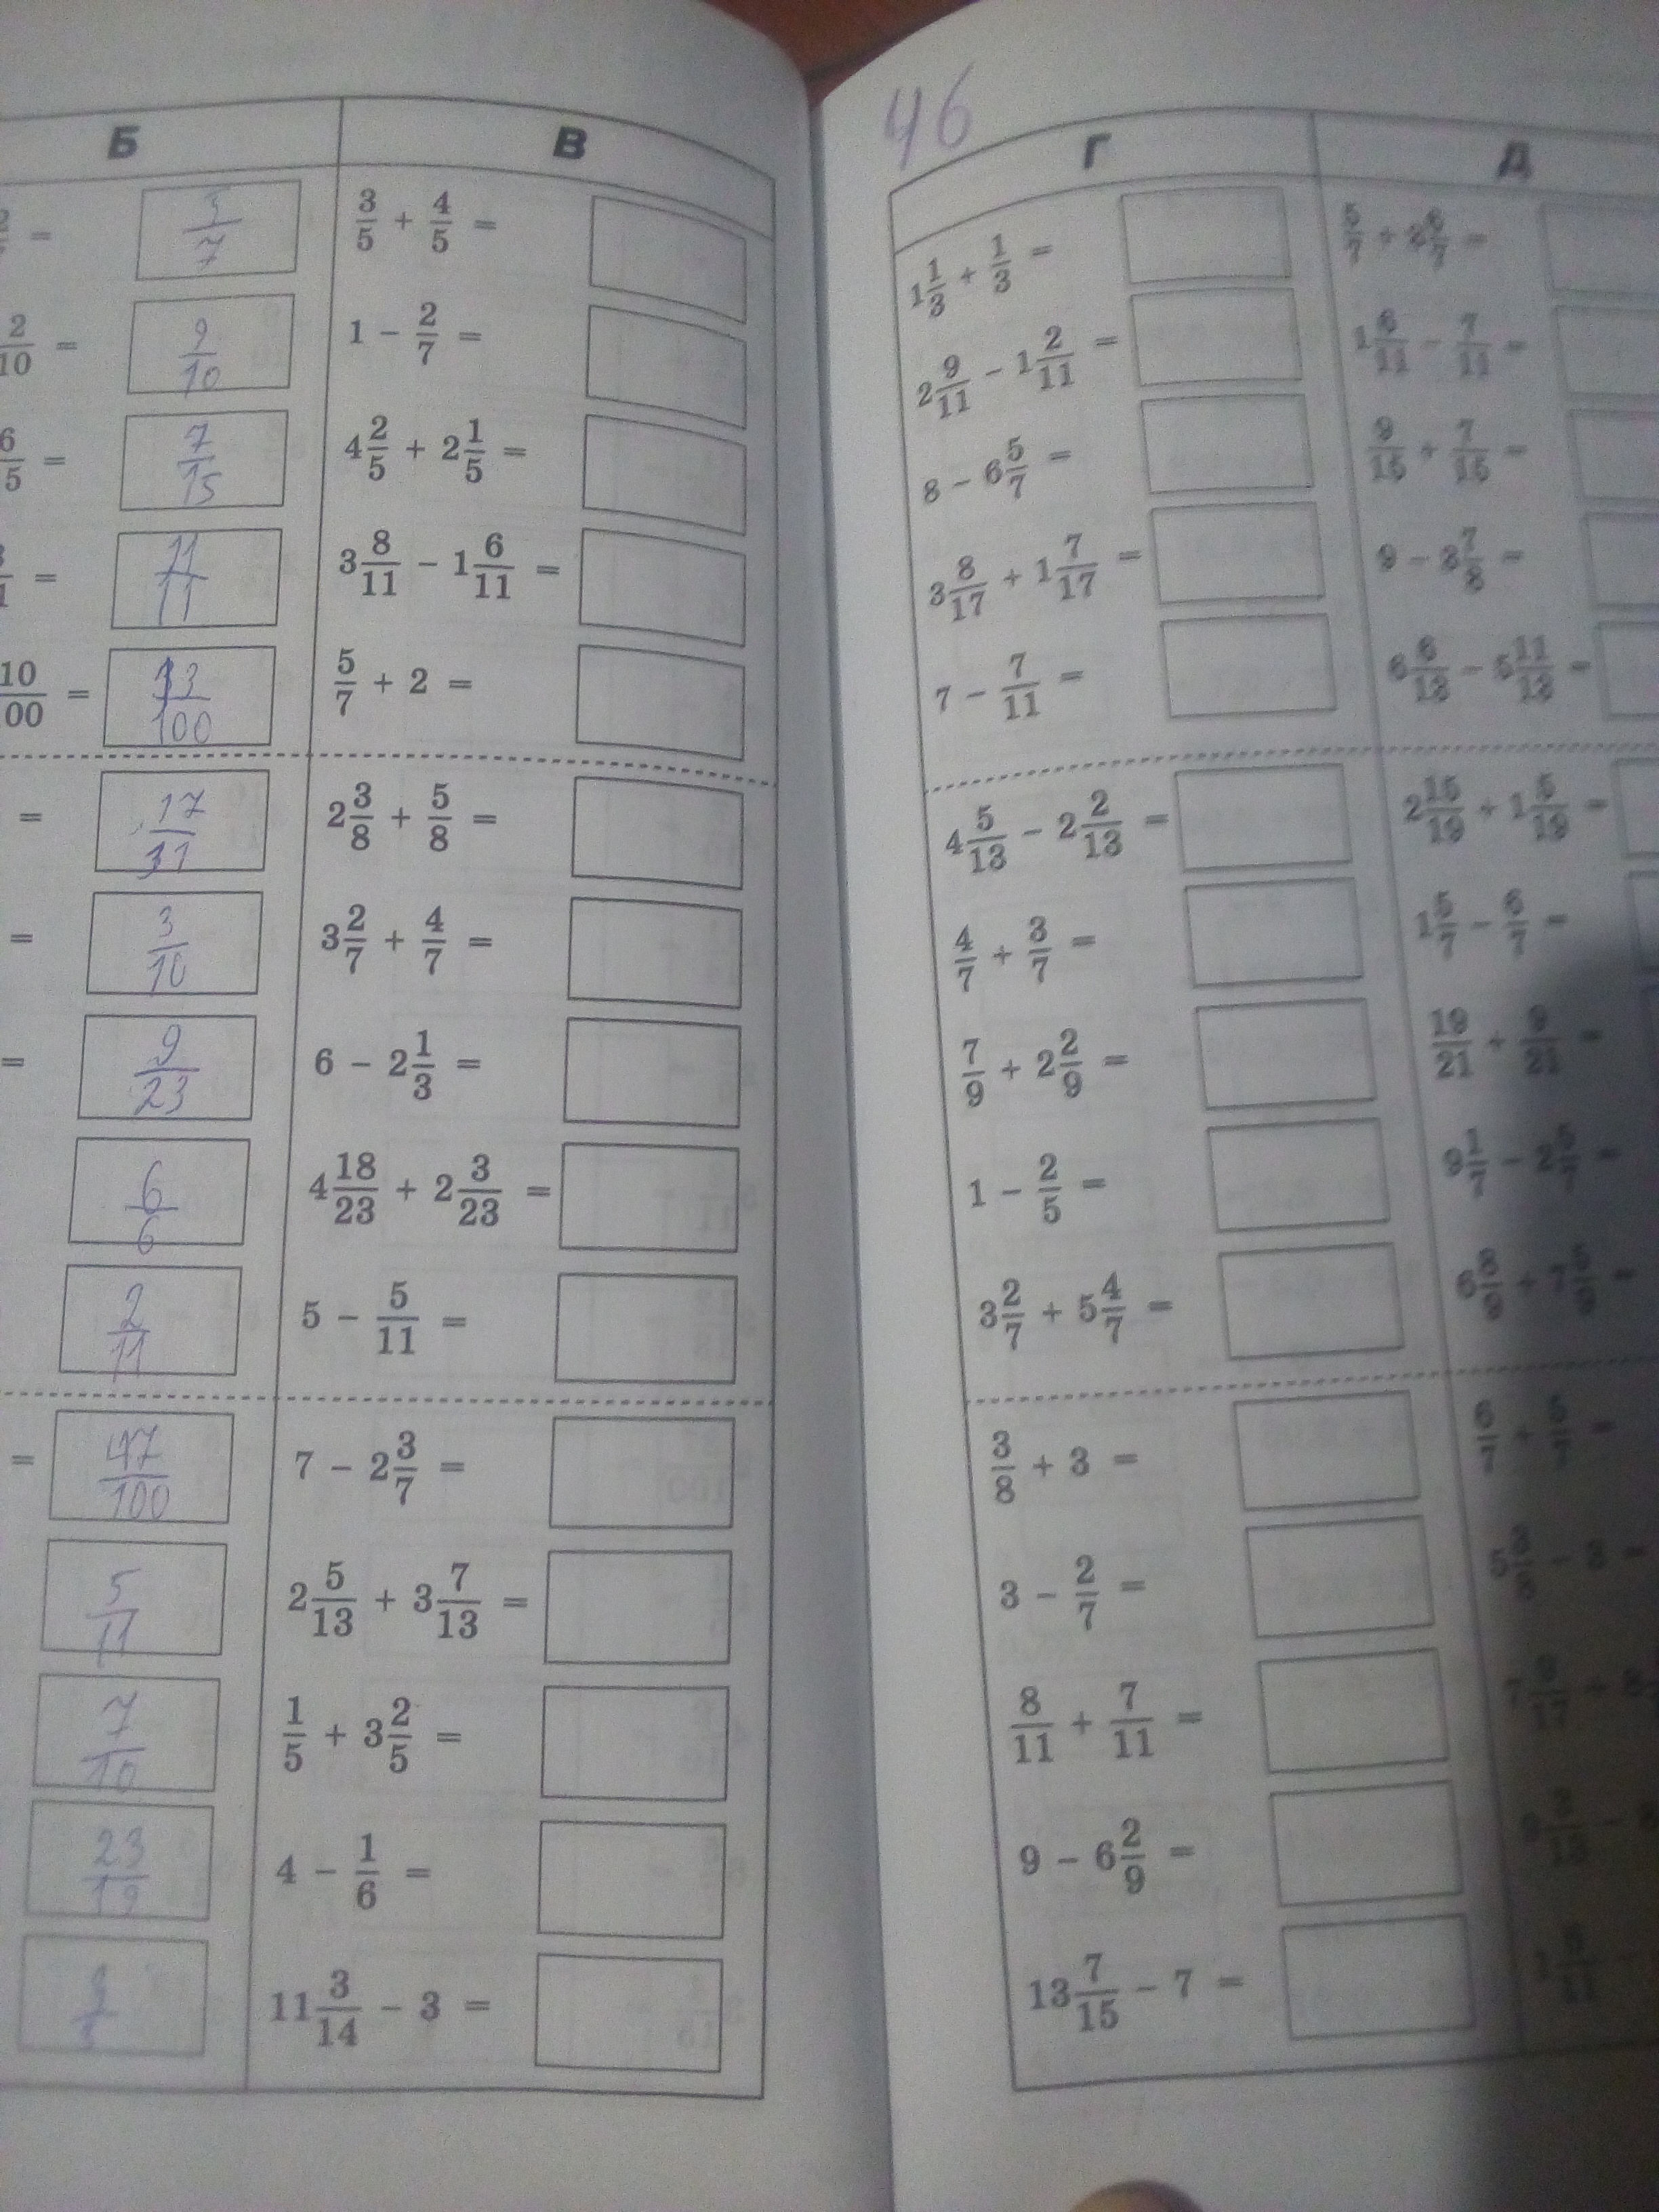 46
Б
2 =
3/7
2/10 =
9/10
6/5 =
7/15
=
11/11
10/00 =
13/100
=
17/31
=
3/10
=
9/23
6/6
2/11
=
47/100
5/11
7/10
23/19
В
3/5 + 4/5 =
1 − 2/7 =
4 2/5 + 2 1/5 =
3 8/11 − 1 6/11 =
5/7 + 2 =
2 3/8 + 5/8 =
3 2/7 + 4/7 =
6 − 2 1/3 =
4 18/23 + 2 3/23 =
5 − 5/11 =
7 − 2 3/7 =
2 5/13 + 3 7/13 =
1/5 + 3 2/5 =
4 − 1/6 =
11 3/14 − 3 =
Г
1 1/3 + 1/3 =
2 9/11 − 1 2/11 =
8 − 6 5/7 =
3 8/17 + 1 7/17 =
7 − 7/11 =
4 5/13 − 2 2/13 =
4/7 + 3/7 =
7/9 + 2 2/9 =
1 − 2/5 =
3 2/7 + 5 4/7 =
3/8 + 3 =
3 − 2/7 =
8/11 + 7/11 =
9 − 6 2/9 =
13 7/15 − 7 =
Д
1 6/11 − 7/11 =
9/15 + 7/15 =
6 6/13 − 5 11/13 =
2 15/19 + 1 5/19 =
1 5/7 − 6/7 =
19/21 + 9/21 =
9 1/7 − 2 5/7 =
6/7 + 5/7 =